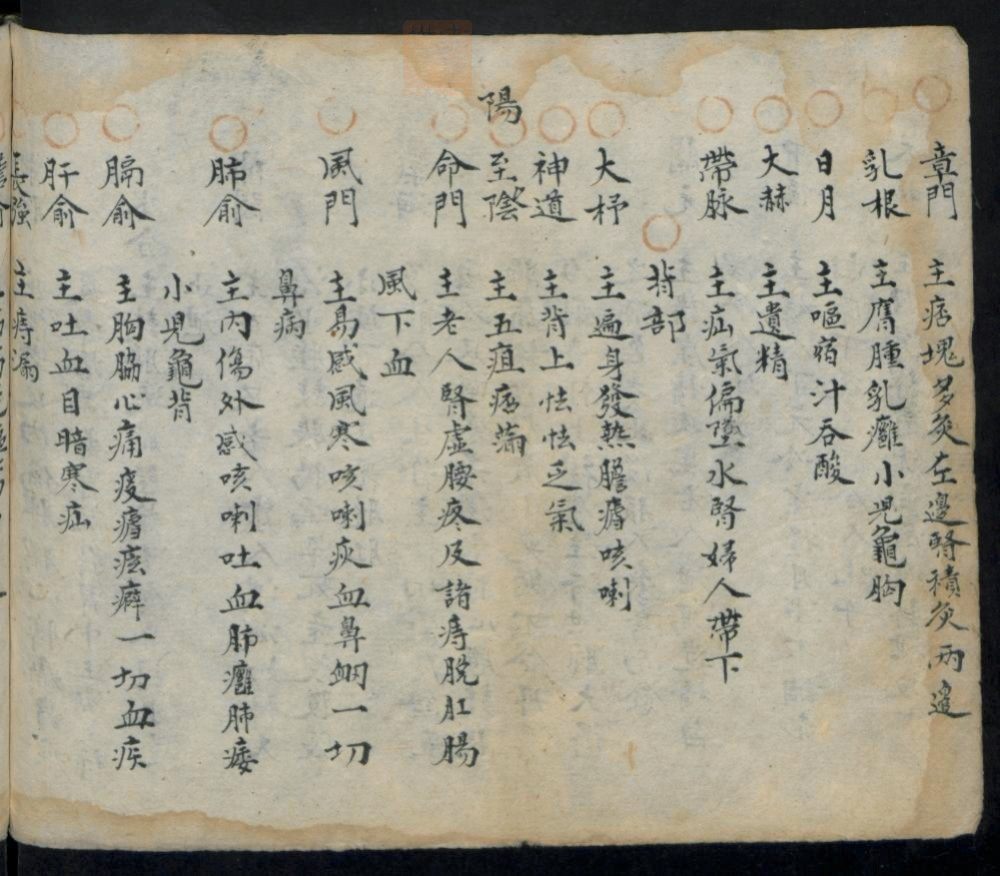 章門 主痞塊多灸左邊腎積灸兩邊
乳根 主膺腫乳癰小兒龜胸
日月 主嘔宿汁吞酸
大赫 主遺精
帶脉 主疝氣偏墜水腎婦人帶下
背部
大杼 主遍身發熱膽瘧咳喇
神道 主背上怯怯乏氣
陽
至陰 主五疽痞滿
命門 主老人腎虛腰疼及諸痔脫肛腸
風下血
風門 主易感風寒咳喇痰血鼻衂一切
鼻病
肺俞 主內傷外感咳喇吐血肺癰肺痿
小兒龜背
膈俞 主胸脇心痛痰瘧痃癖一切血疾
肝俞 主吐血目暗寒疝
長強 主痔漏